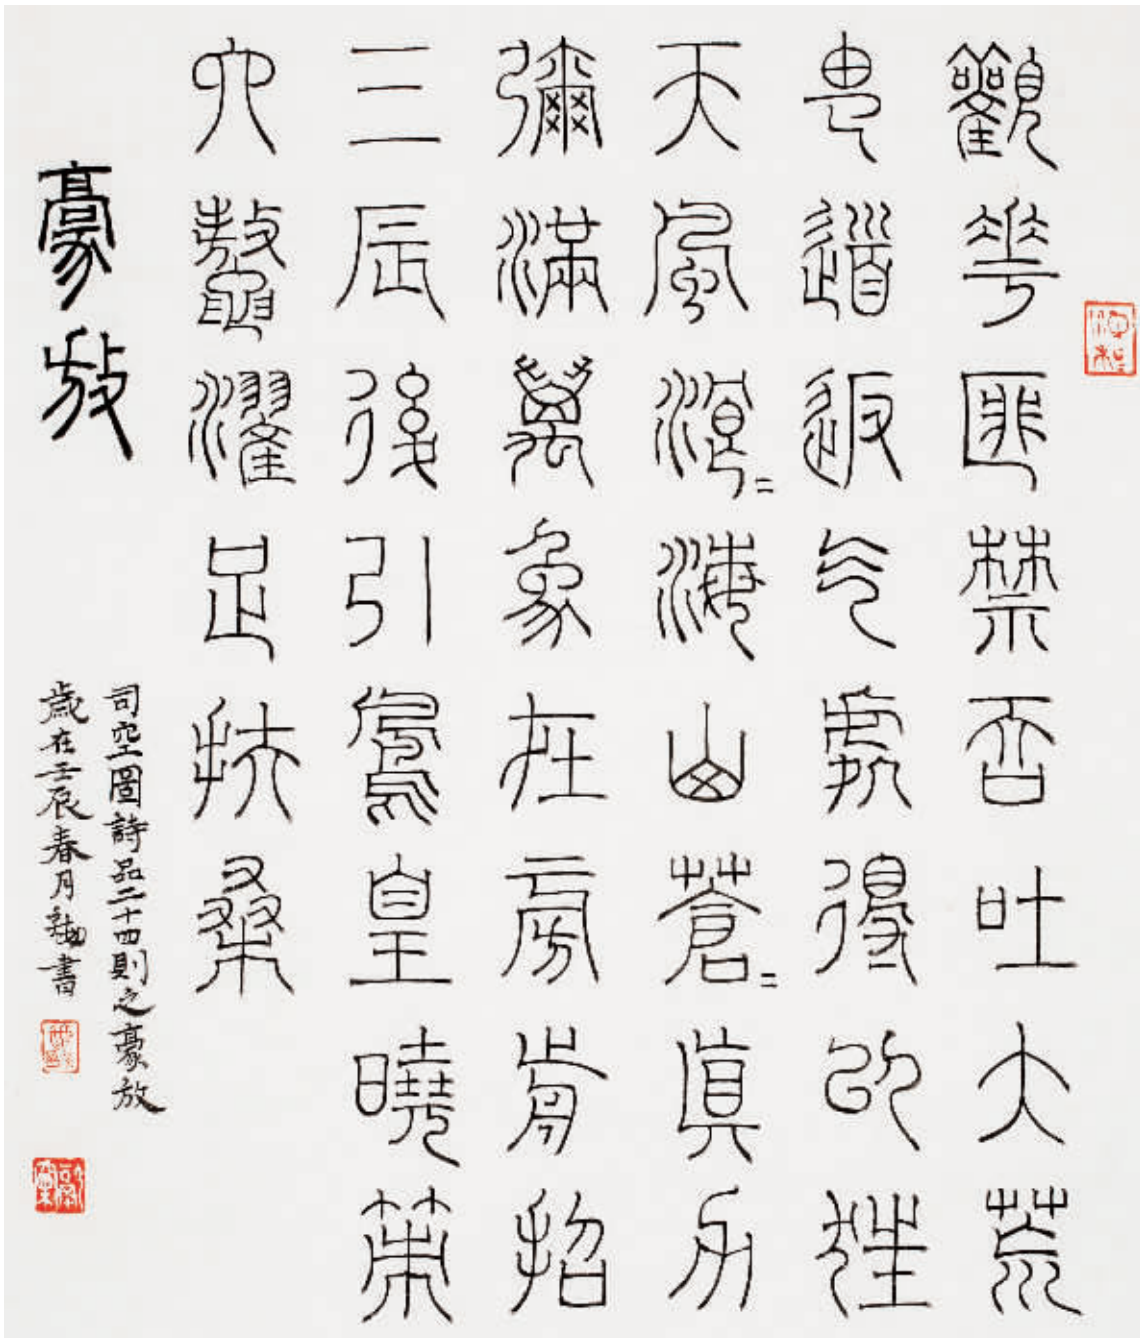 觀華匪禁吞吐大荒
由道返气處得以狂
天風浪〻海山蒼〻眞力
彌滿萬象在旁前招
三辰後引鳳皇曉策
六鼇濯足扶桑
豪放
司空圖詩品二十四則之豪放
歲在壬辰春月書